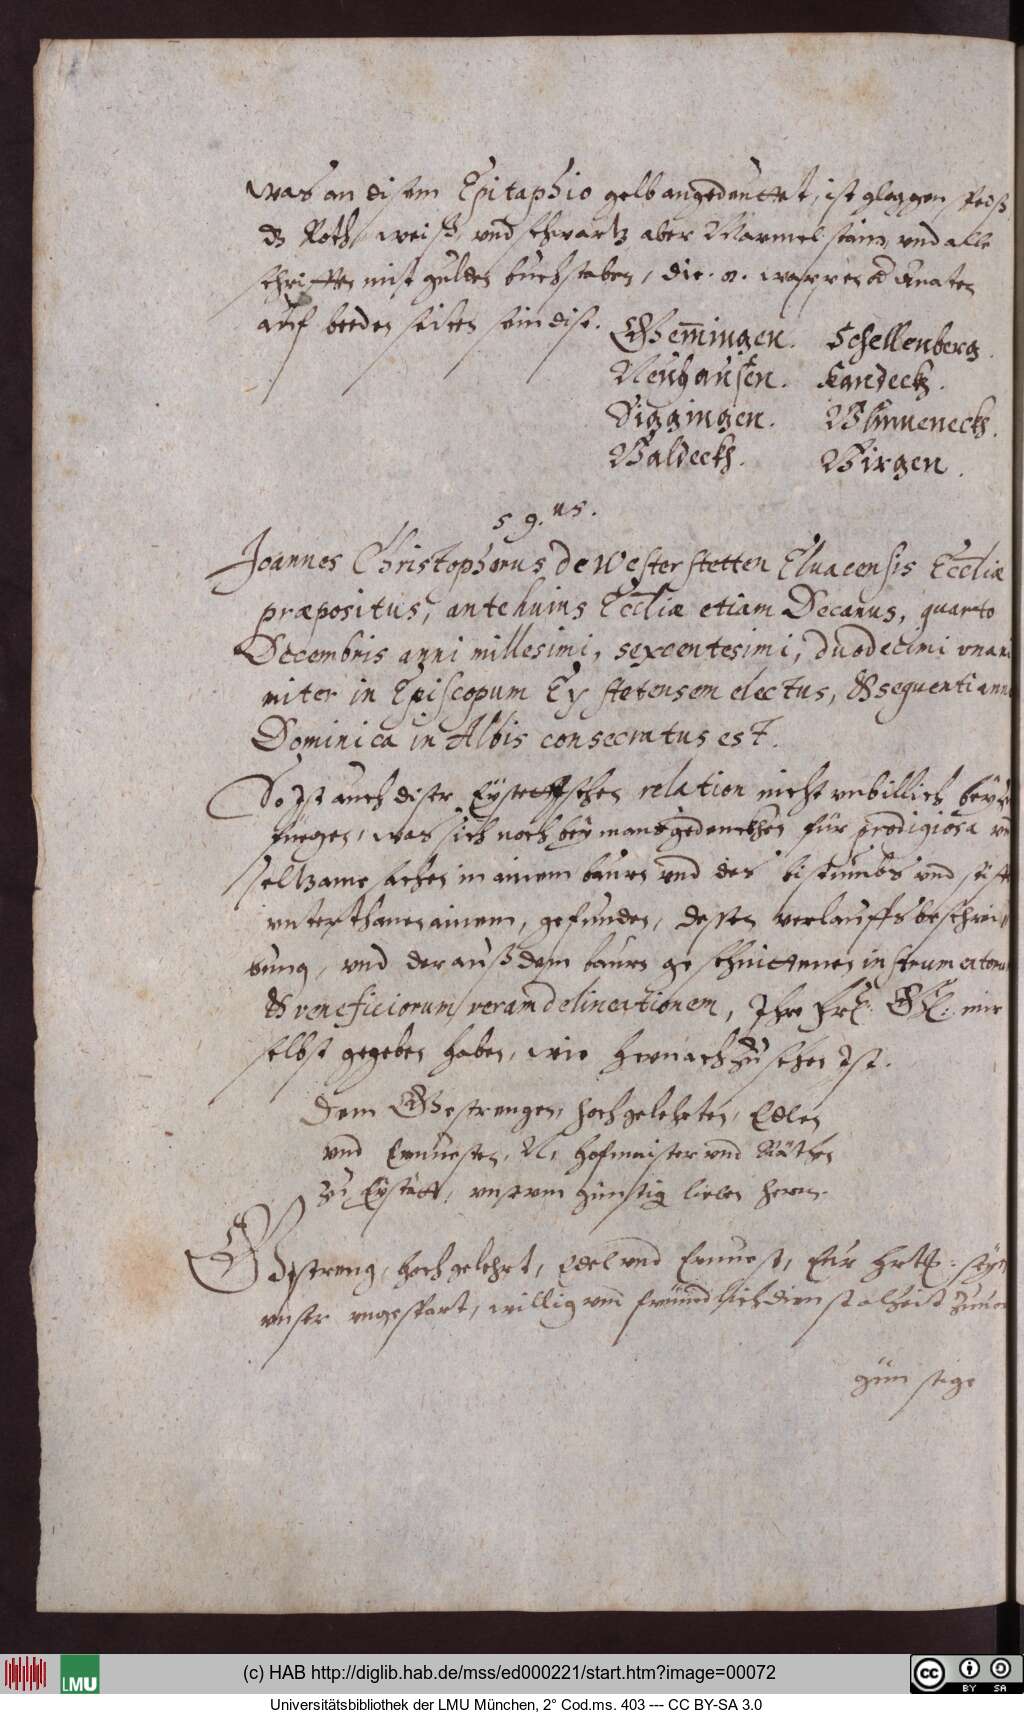 was an disem Epitaphio gelb angedeuttet, ist gloggen speiß
dz Roth, weiß, vnd schwartz aber Marmelstain, vnd alle
schrifften mit gulden buechstaben, die .8. wappen od Anaten
auf beeden seiten sein dise.
Gem̄ingen. Schellenberg.
Neuhausen. Kandeck.
Siggingen. Blumeneckh.
Waldeckh. Wirgen.
59.us.
Joannes Christophorus de Westerstetten Eluacensis Eccliæ
præpositus, ante huius Eccliæ etiam Decanus, quarto
Decembris anni millesimi, sexcentesimi, duodecimi vnani
miter in Episcopum Eystetensem electus, & sequenti anno
Dominica in Albis consecratus est.
So Ist auch diser Eystettischen relation nicht vnbillich beyzu
füegen, was sich noch bey mansgedenckhen für prodigiosa vnd
seltzame sachen in ainem bauren vnd des bistumbs vnd stiffts
vnterthanen ainem, gefunden, dessen verlauffs beschrei,,
bung, vnd der auß dem bauren geschnittenen instrumentorum
& veneficiorum veram delineationem, Ihre Frl. Gl. mir
selbst gegeben haben, wie hernach zu sehen Ist.
Dem Gestrengen, hochgelehrten, Edlen
vnd Ernuesten, N. hofmaister vnd Räthen
zu Eystätt, vnserm günstig lieben herrn.
Gestreng, hochgelehrt, Edel vnd Ernuest, Eur Hrtl. seyen
vnser vngespart, willig vnd freundtlich dienst alheit zuuor
günstige
(c) HAB http://diglib.hab.de/mss/ed000221/start.htm?image=00072
LMU
BY SA
Universitätsbibliothek der LMU München, 2° Cod.ms. 403 --- CC BY-SA 3.0